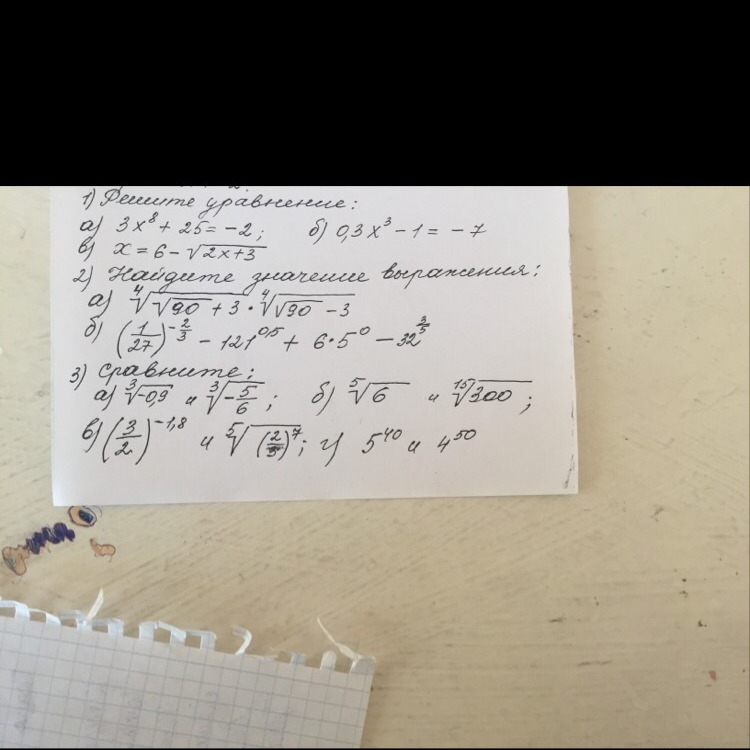 1) Решите уравнение:
а) 3x⁸ + 25 = -2; б) 0,3x³ - 1 = -7
в) x = 6 - √(2x+3)
2) Найдите значение выражения:
а) ⁴√(√90 + 3) · ⁴√(√90 - 3)
б) (1/27)^(-2/3) - 121^(0,5) + 6·5⁰ - 32^(3/5)
3) Сравните:
а) ³√(-0,9) и ³√(-5/6); б) ⁵√6 и ¹⁵√300;
в) (3/2)^(-1,8) и ⁵√((2/3)⁷); г) 5⁴⁰ и 4⁵⁰